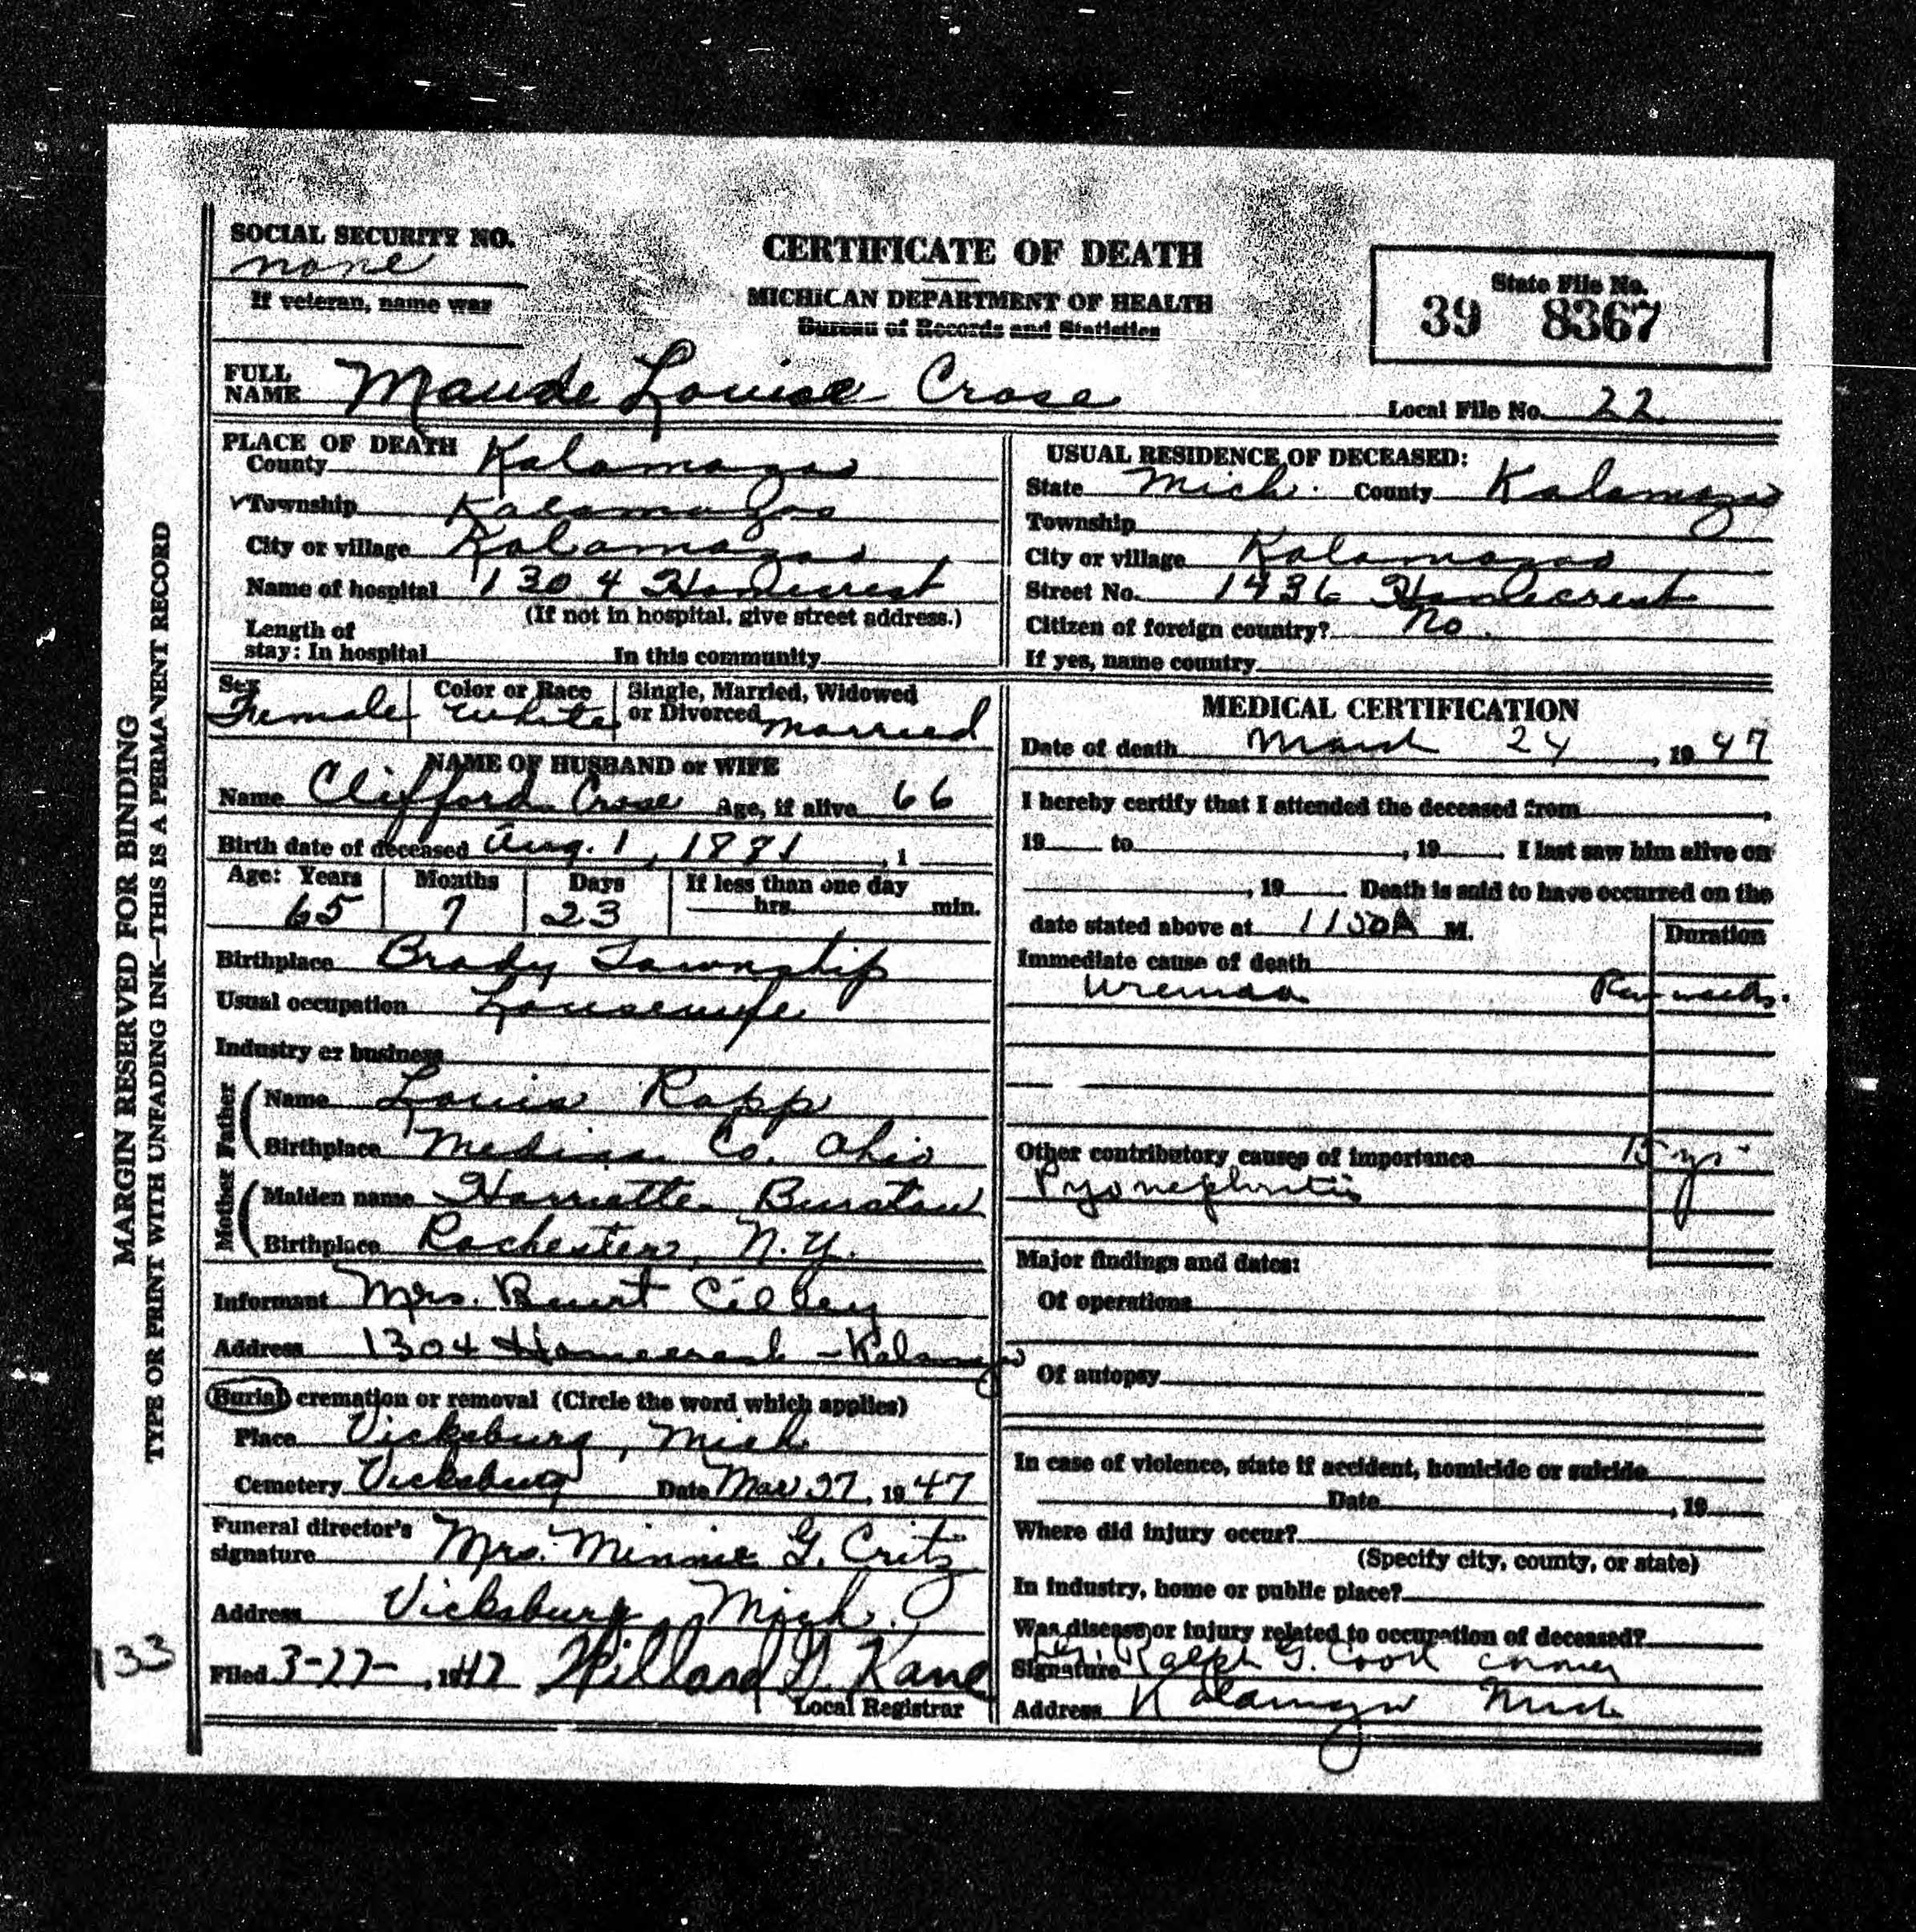 SOCIAL SECURITY NO.
none
If veteran, name war
CERTIFICATE OF DEATH
MICHIGAN DEPARTMENT OF HEALTH
Bureau of Records and Statistics
State File No.
39 8367
FULL NAME Maude Louise Crose
Local File No. 22
PLACE OF DEATH
County Kalamazoo
Township Kalamazoo
City or village Kalamazoo
Name of hospital 1304 Homecrest
(If not in hospital, give street address.)
Length of
stay: In hospital In this community
USUAL RESIDENCE OF DECEASED:
State Mich. County Kalamazoo
Township
City or village Kalamazoo
Street No. 1436 Homecrest
Citizen of foreign country? No.
If yes, name country
Sex Female
Color or Race White
Single, Married, Widowed
or Divorced married
NAME OF HUSBAND or WIFE
Name Clifford Crose Age, if alive 66
Birth date of deceased Aug. 1, 1881, 1
Age: Years Months Days If less than one day
65 7 23 hrs. min.
Birthplace Brady Township
Usual occupation Housewife
Industry or business
Father
Name Louis Rapp
Birthplace Medina Co. Ohio
Mother
Maiden name Harriette
Birthplace Rochester, N.Y.
Informant Mrs. Burt
Address 1304 Homecrest - Kalamazoo
Burial, cremation or removal (Circle the word which applies)
Place Vicksburg, Mich
Cemetery Vicksburg Date Mar 27, 1947
Funeral director's
signature Mrs. Minnie G. Critz
Address Vicksburg, Mich.
Filed 3-27-, 1947 Willard Kane
Local Registrar
MEDICAL CERTIFICATION
Date of death March 24, 1947
I hereby certify that I attended the deceased from ,
19 to , 19 . I last saw him alive on
, 19 . Death is said to have occurred on the
date stated above at 1150A M.
Duration
Immediate cause of death
Uremia weeks.
Other contributory causes of importance 15 yrs
Pyonephritis
Major findings and dates:
Of operations
Of autopsy
In case of violence, state if accident, homicide or suicide
Date , 19
Where did injury occur?
(Specify city, county, or state)
In industry, home or public place?
Was disease or injury related to occupation of deceased?
Signature Ralph G. Cook coroner
Address Kalamazoo Mich
MARGIN RESERVED FOR BINDING
TYPE OR PRINT WITH UNFADING INK—THIS IS A PERMANENT RECORD
133